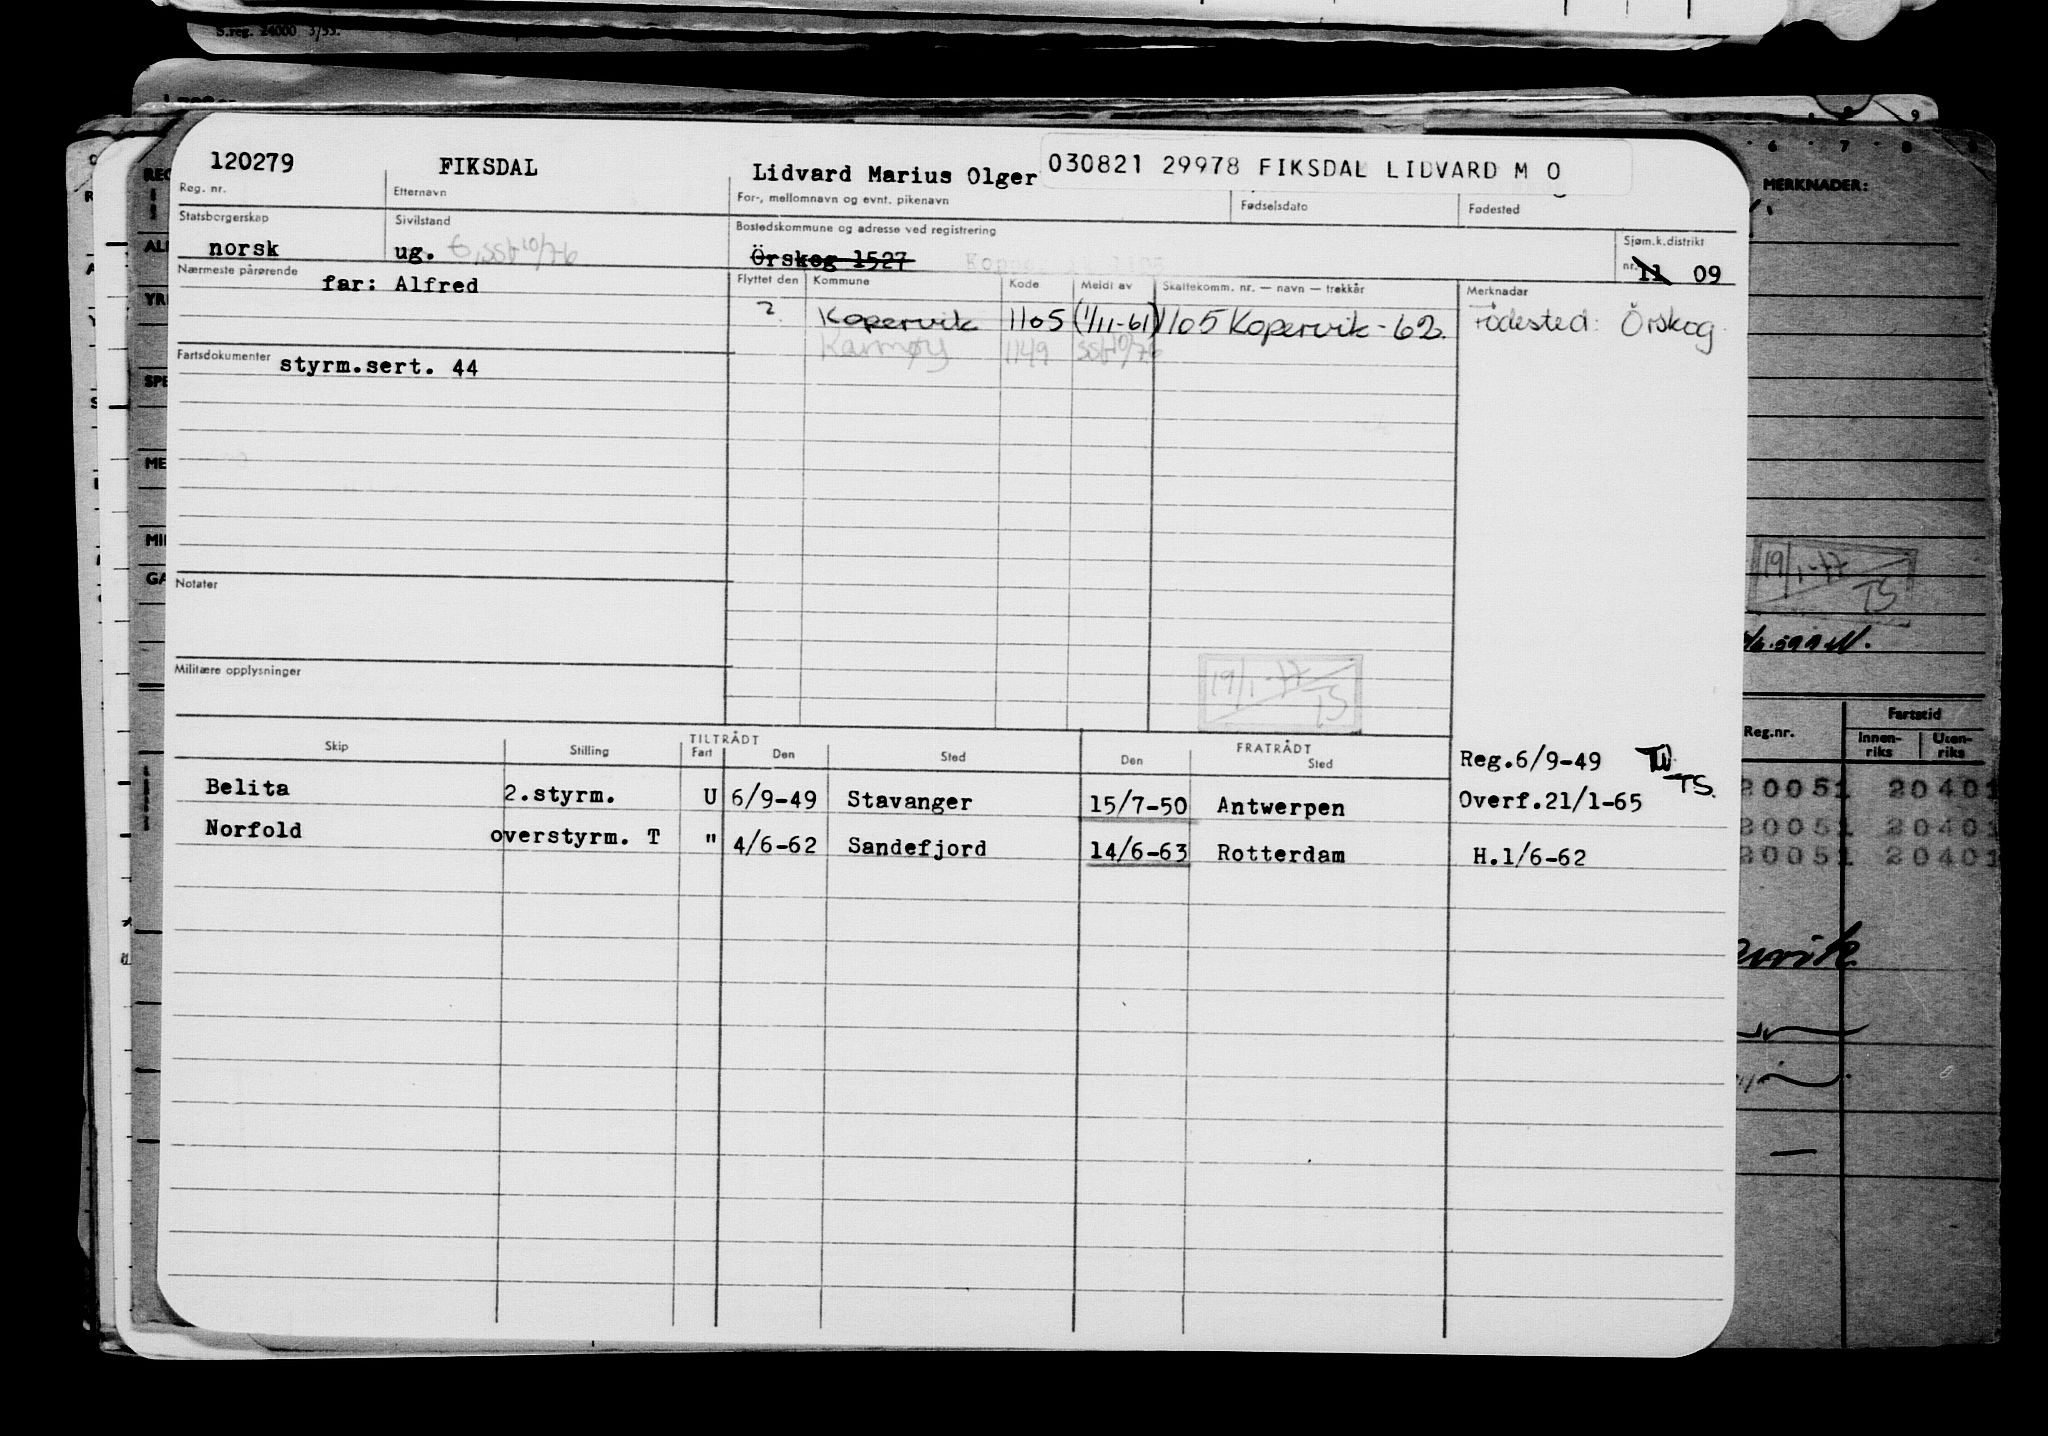 S.reg. 24000 3/55.
120279 FIKSDAL Lidvard Marius Olger 030821 29978 FIKSDAL LIDVARD M O
Reg. nr. Etternavn For-, mellomnavn og evnt. pikenavn Fødselsdato Fødested
Statsborgerskap Sivilstand Bostedskommune og adresse ved registrering Sjøm.k.distrikt
norsk ug. G, SSB 10/76 Örskog 1527 nr. 11 09
Nærmeste pårørende Flyttet den Kommune Kode Meldt av Skattekomm. nr. — navn — trekkår Merknadar
far: Alfred
? Kopervik 1105 (1/11-61) 1105 Kopervik - 62. Fødested: Örskog
Karmøy 1149 SSB 10/76
Fartsdokumenter styrm.sert. 44
Notater
Militære opplysninger
19/1-77 TS
Skip Stilling TILTRÅDT Fart Den Sted FRATRÅDT Den Sted
Reg.6/9-49
Belita 2.styrm. U 6/9-49 Stavanger 15/7-50 Antwerpen Overf.21/1-65 TS.
Norfold overstyrm. T " 4/6-62 Sandefjord 14/6-63 Rotterdam H.1/6-62
MERKNADER:
19/1-77 TS
Reg.nr. Fartstid
Innen-riks Uten-riks
20051 20401
20051 20401
20051 20401